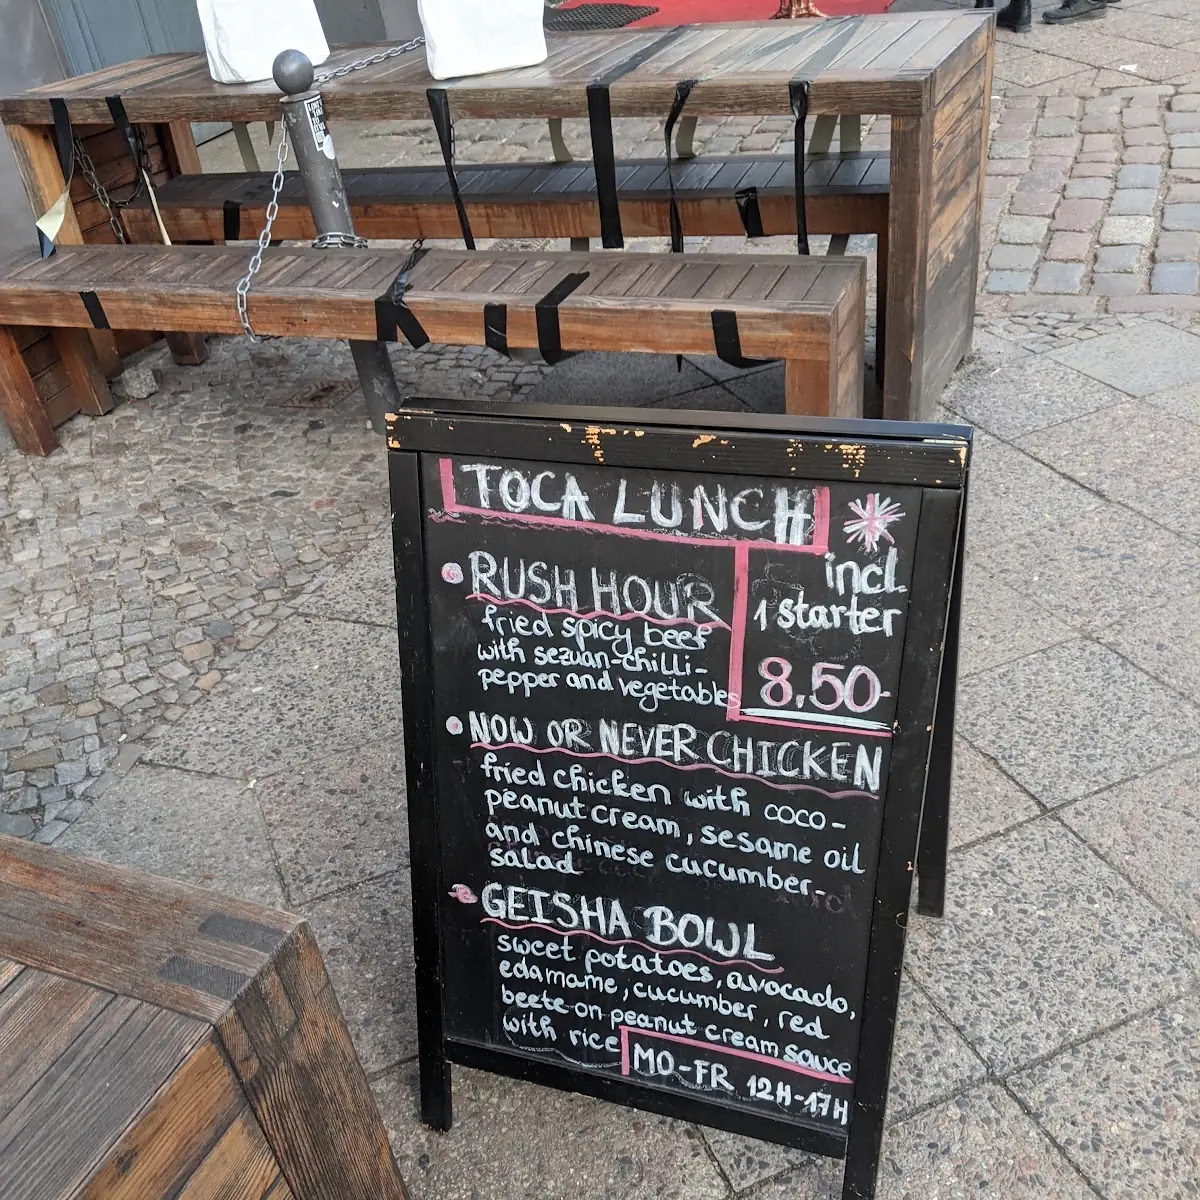 TOCA LUNCH
incl.
1 starter
8.50-
RUSH HOUR
fried spicy beef
with sezuan-chilli-
pepper and vegetables
NOW OR NEVER CHICKEN
fried chicken with coco-
peanut cream, sesame oil
and chinese cucumber-
salad
GEISHA BOWL
sweet potatoes, avocado,
edamame, cucumber, red
beete on peanut cream sauce
with rice
MO-FR 12H-17H